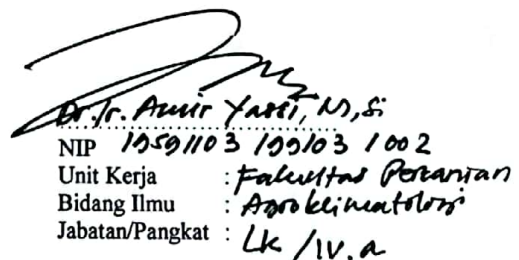 Dr. Ir. Amir Yassi, M,Si
NIP 19591103 199103 1 002
Unit Kerja : Fakultas Pertanian
Bidang Ilmu : Agroklimatologi
Jabatan/Pangkat : Lk /IV.a